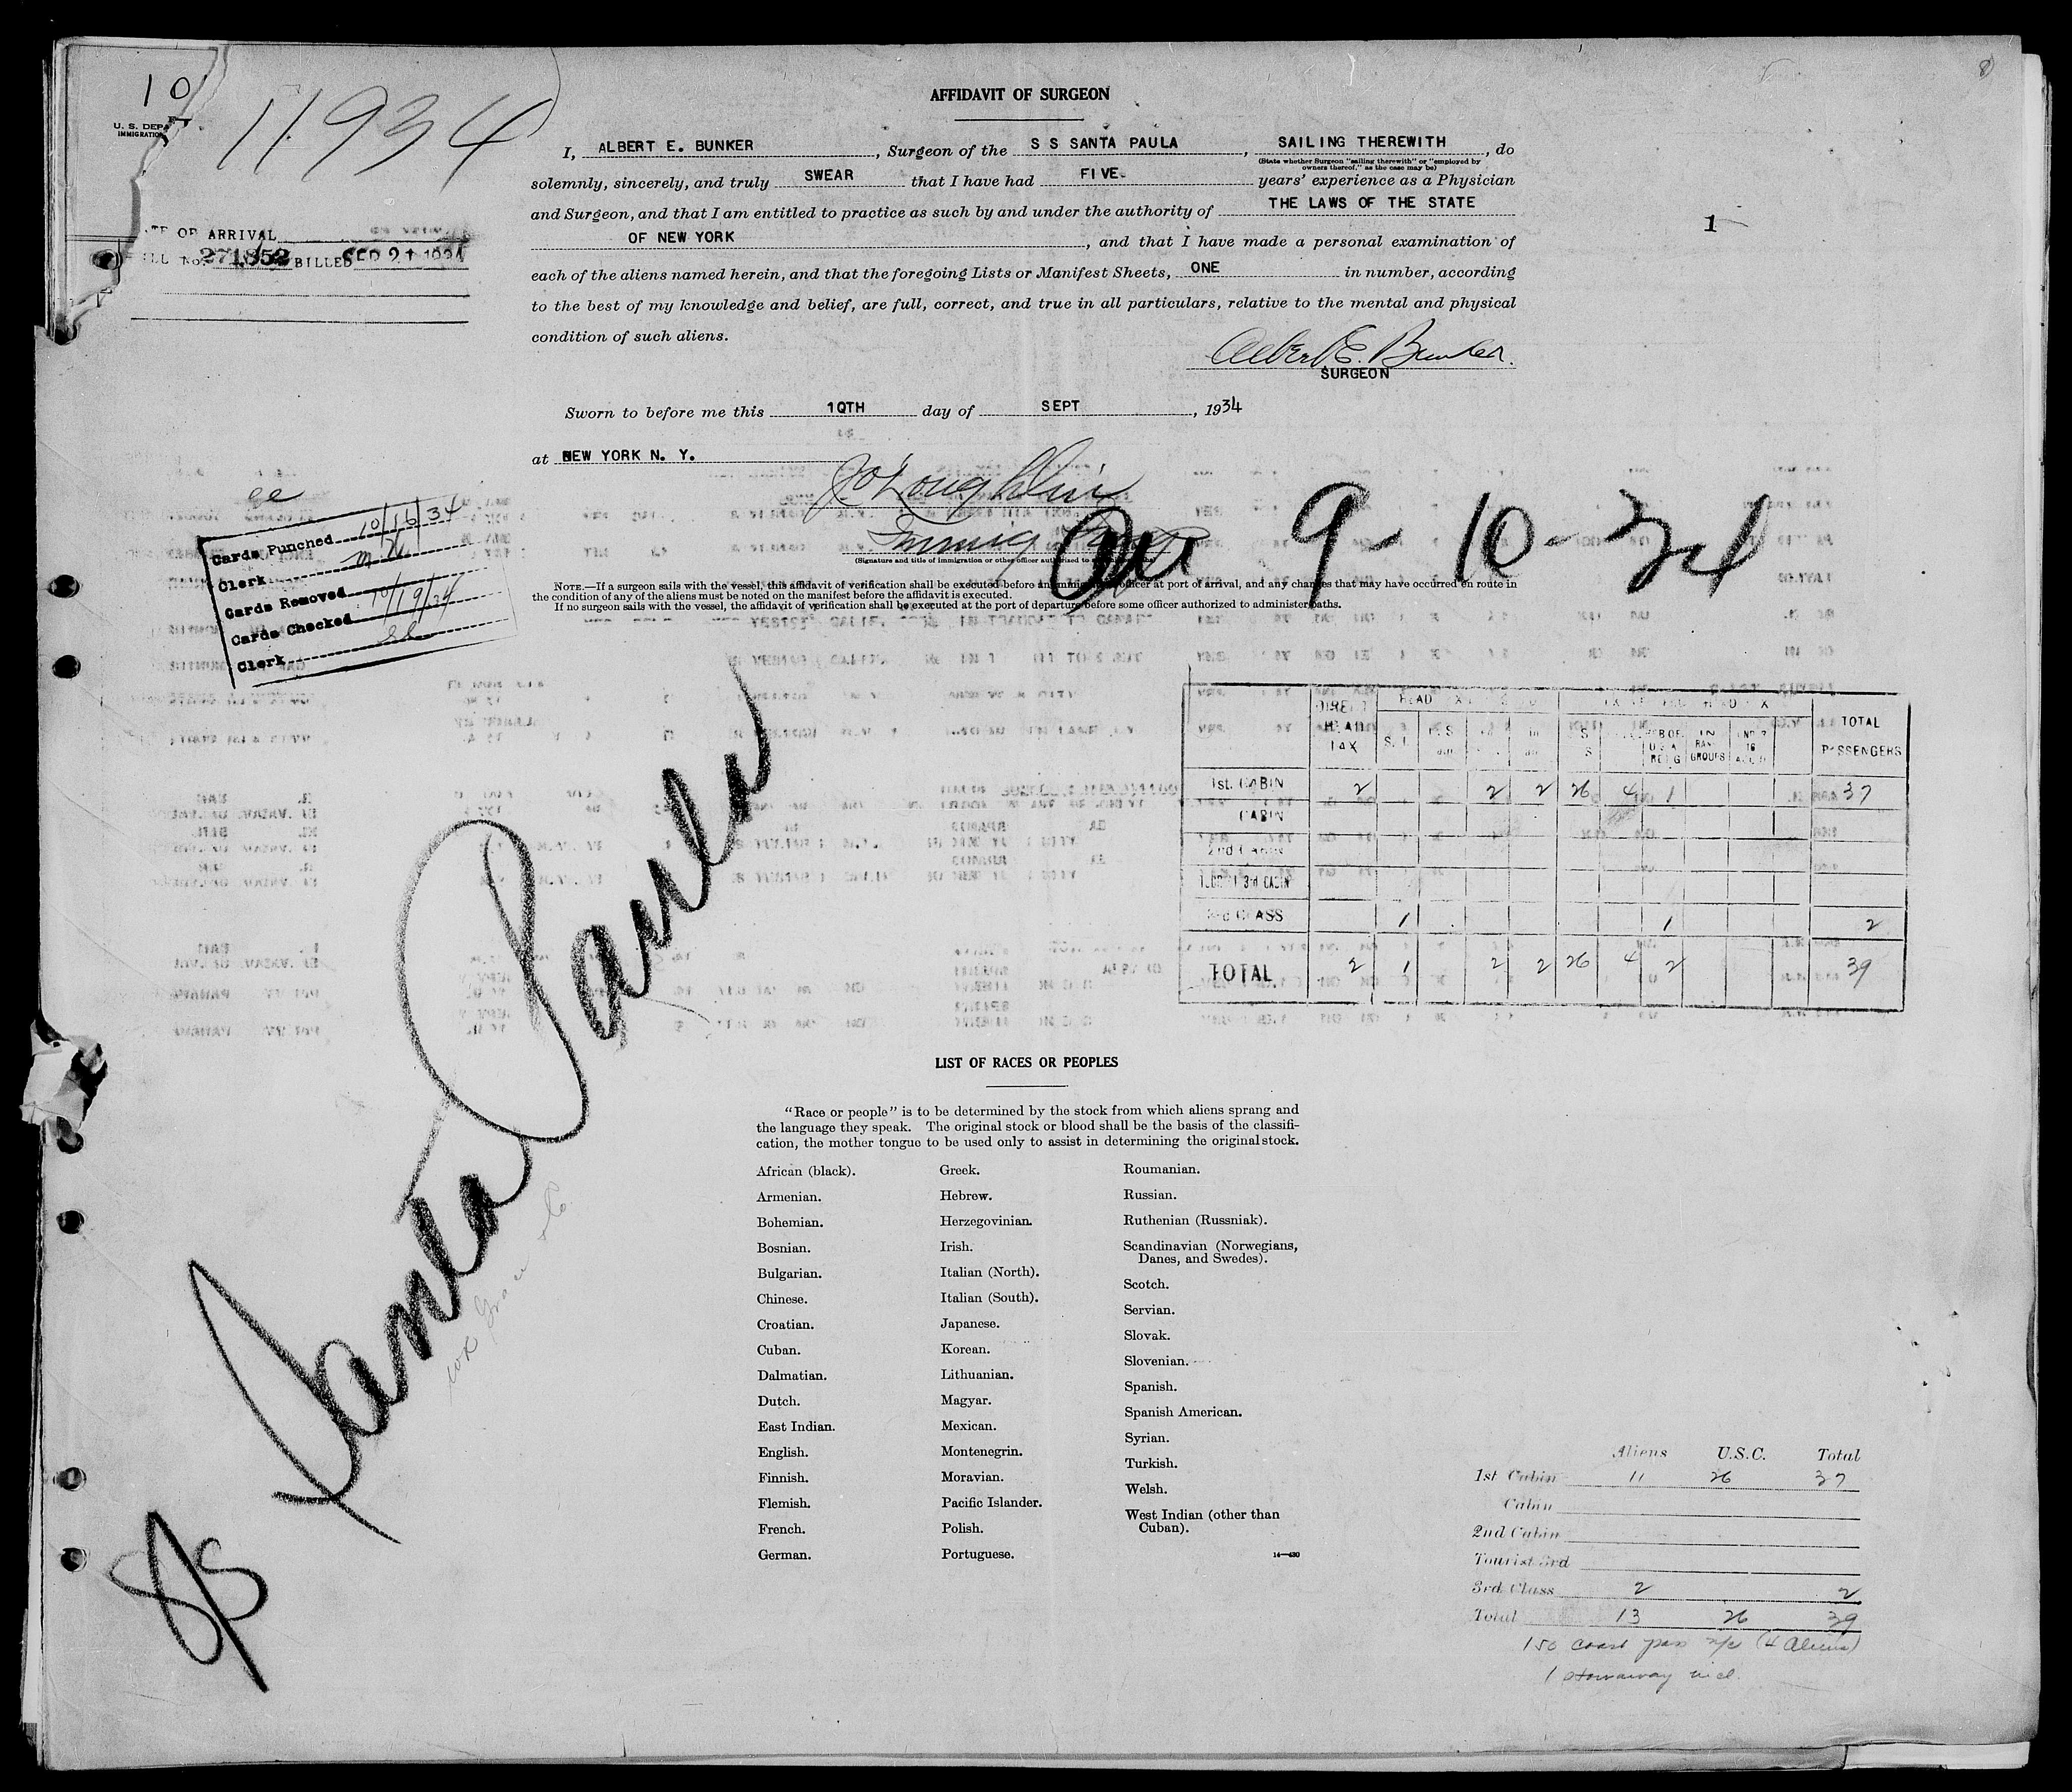 10
U. S. DEPA
IMMIGRATION
11934
8
AFFIDAVIT OF SURGEON
I, ALBERT E. BUNKER, Surgeon of the S S SANTA PAULA, SAILING THEREWITH, do
(State whether Surgeon "sailing therewith" or "employed by
owners thereof," as the case may be)
solemnly, sincerely, and truly SWEAR that I have had FIVE years' experience as a Physician
and Surgeon, and that I am entitled to practice as such by and under the authority of THE LAWS OF THE STATE
OF NEW YORK, and that I have made a personal examination of
each of the aliens named herein, and that the foregoing Lists or Manifest Sheets, ONE in number, according
to the best of my knowledge and belief, are full, correct, and true in all particulars, relative to the mental and physical
condition of such aliens.
1
OF ARRIVAL
271852 BILLED SEP 21 1934
Albert E. Bunker.
SURGEON
Sworn to before me this 10TH day of SEPT, 1934
at NEW YORK N. Y.
(Signature and title of immigration or other officer authorized to
9-10-34
NOTE.—If a surgeon sails with the vessel, this affidavit of verification shall be executed before an immigration officer at port of arrival, and any changes that may have occurred en route in
the condition of any of the aliens must be noted on the manifest before the affidavit is executed.
If no surgeon sails with the vessel, the affidavit of verification shall be executed at the port of departure before some officer authorized to administer oaths.
Cards Punched 10/16/34
Clerk
Cards Removed
Cards Checked 10/19/34
Clerk
DIRECT HEAD TAX
TOTAL PASSENGERS
1st. CABIN 2 2 2 26 4 1 37
CABIN
2nd CABIN
3rd CABIN
3rd CLASS 1 1 2
TOTAL 2 1 2 2 26 4 2 39
S/S Santa Paula
LIST OF RACES OR PEOPLES
"Race or people" is to be determined by the stock from which aliens sprang and
the language they speak. The original stock or blood shall be the basis of the classifi-
cation, the mother tongue to be used only to assist in determining the original stock.
African (black).
Armenian.
Bohemian.
Bosnian.
Bulgarian.
Chinese.
Croatian.
Cuban.
Dalmatian.
Dutch.
East Indian.
English.
Finnish.
Flemish.
French.
German.
Greek.
Hebrew.
Herzegovinian.
Irish.
Italian (North).
Italian (South).
Japanese.
Korean.
Lithuanian.
Magyar.
Mexican.
Montenegrin.
Moravian.
Pacific Islander.
Polish.
Portuguese.
Roumanian.
Russian.
Ruthenian (Russniak).
Scandinavian (Norwegians,
Danes, and Swedes).
Scotch.
Servian.
Slovak.
Slovenian.
Spanish.
Spanish American.
Syrian.
Turkish.
Welsh.
West Indian (other than
Cuban).
14—430
Aliens U.S.C. Total
1st Cabin 11 26 37
Cabin
2nd Cabin
Tourist 3rd
3rd Class 2 2
Total 13 26 39
150 coast pass (4 Aliens)
1 stowaway incl.